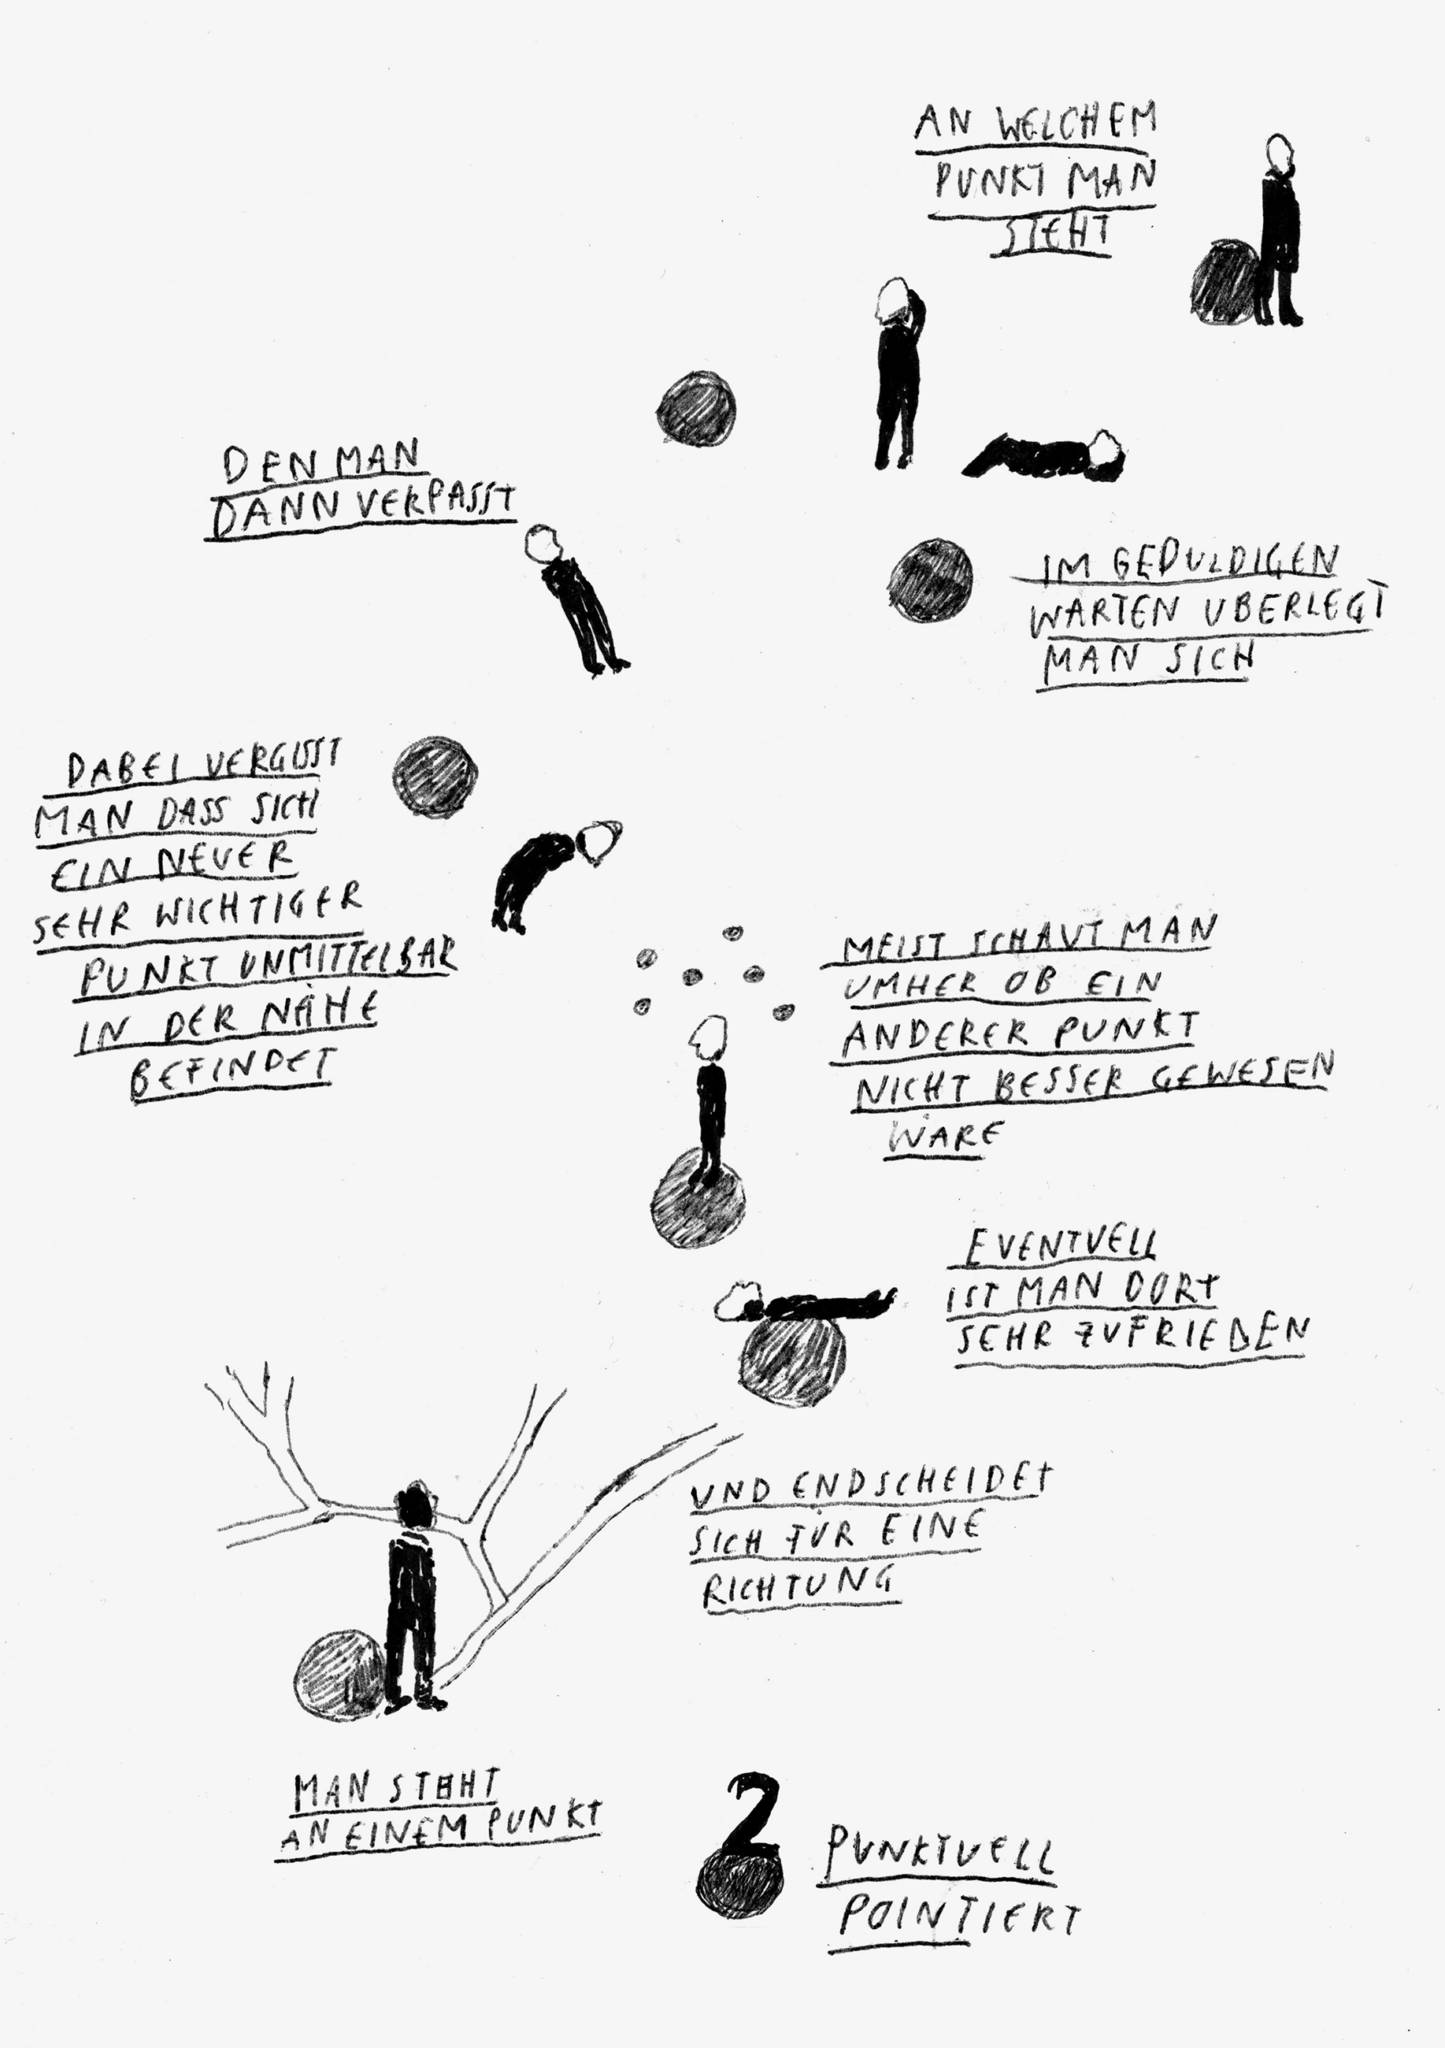 AN WELCHEM
PUNKT MAN
STEHT
DEN MAN
DANN VERPASST
IM GEDULDIGEN
WARTEN UBERLEGT
MAN SICH
DABEI VERGISST
MAN DASS SICH
EIN NEUER
SEHR WICHTIGER
PUNKT UNMITTELBAR
IN DER NÄHE
BEFINDET
MEIST SCHAUT MAN
UMHER OB EIN
ANDERER PUNKT
NICHT BESSER GEWESEN
WÄRE
EVENTUELL
IST MAN DORT
SEHR ZUFRIEDEN
UND ENDSCHEIDET
SICH FÜR EINE
RICHTUNG
MAN STEHT
AN EINEM PUNKT
2
PUNKTUELL
POINTIERT